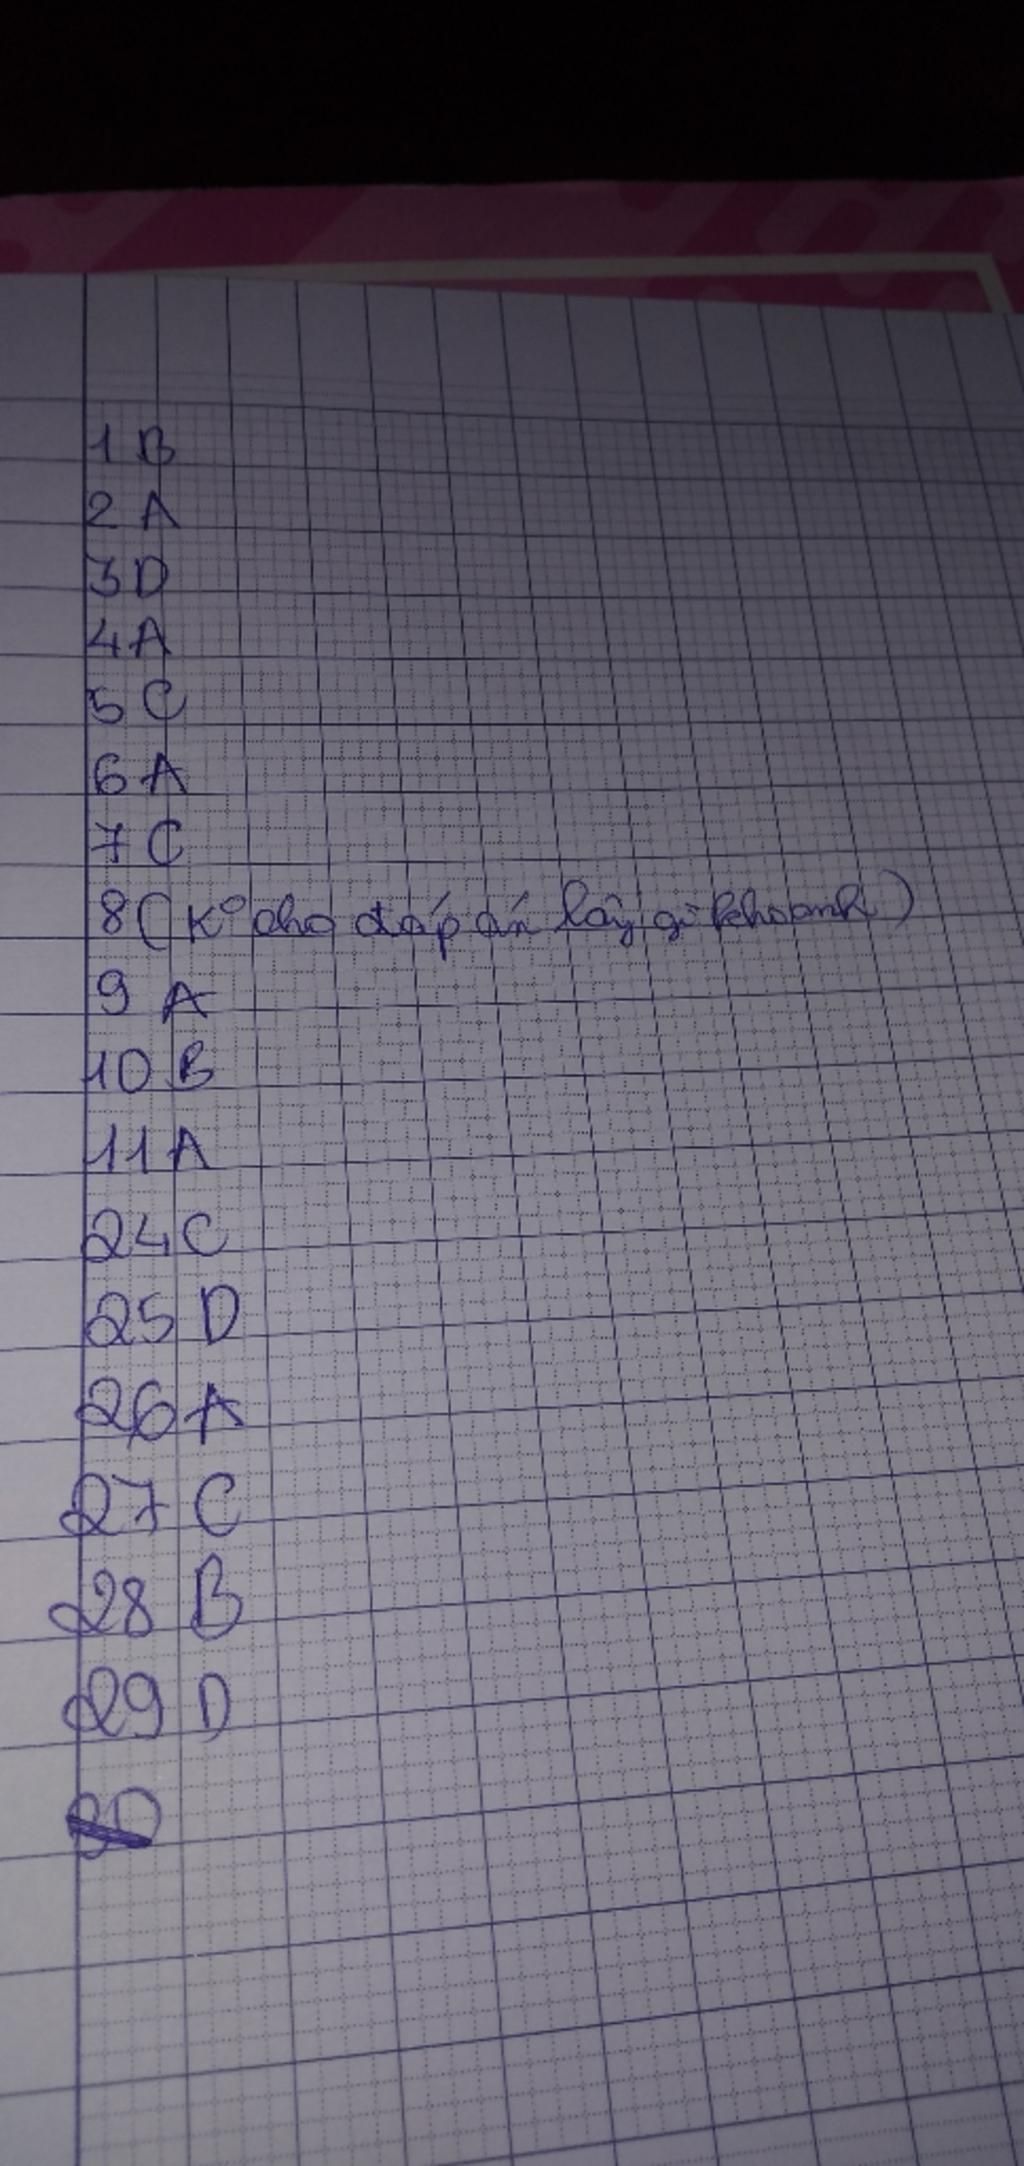 1 B
2 A
3 D
4 A
5 C
6 A
7 C
8 ( K° cho đáp án lấy gì khoanh )
9 A
10 B
11 A
24 C
25 D
26 A
27 C
28 B
29 D